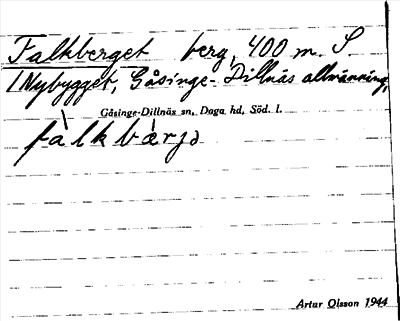 Falkberget berg, 400 m. S.
/Nybygget, Gåsinge-Dillnäs allmänning,
Gåsinge-Dillnäs sn, Daga hd, Söd. l.
fàlkbàrjə
Artur Olsson 1944